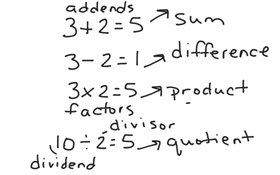 addends
3+2=5 → sum
3-2=1 → difference
3×2=5 → product
factors
divisor
10÷2=5 → quotient
dividend